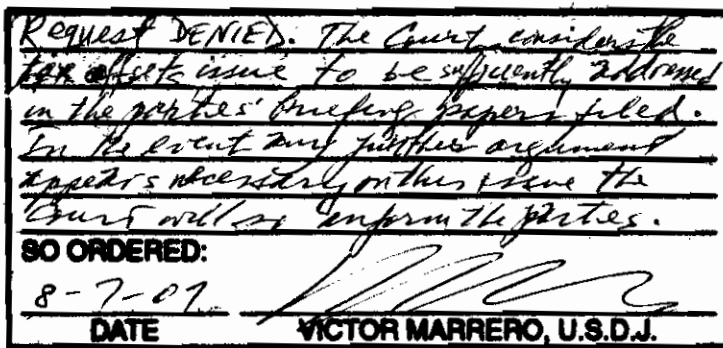 Request DENIED. The Court considers the
tax offsets issue to be sufficiently addressed
in the parties' briefing papers filed.
In the event any further argument
appears necessary on this issue the
Court will so inform the parties.
SO ORDERED:
8-7-07
DATE VICTOR MARRERO, U.S.D.J.